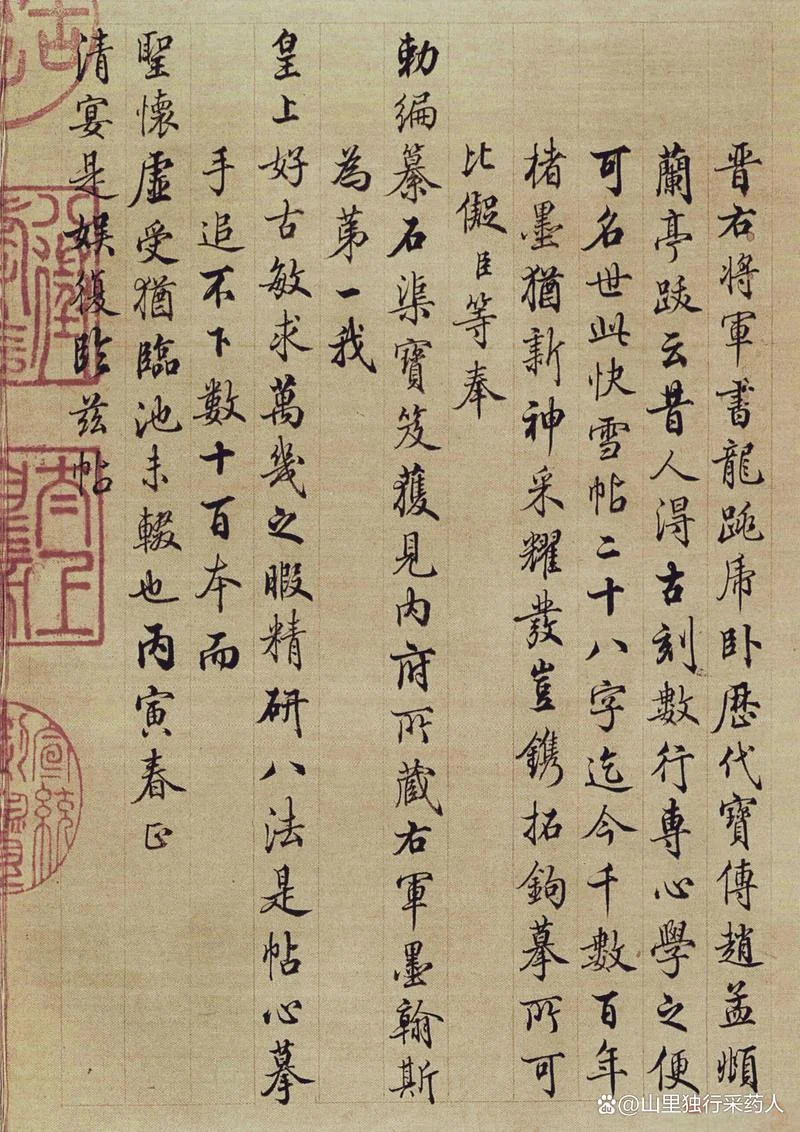 晉右將軍書龍跳虎卧歷代寶傳趙孟頫
蘭亭跋云昔人得古刻數行專心學之便
可名世此快雪帖二十八字迄今千數百年
楮墨猶新神采耀發豈鐫拓鉤摹所可
比儗臣等奉
勅編纂石渠寶笈獲見內府所藏右軍墨翰斯
為苐一我
皇上好古敏求萬幾之暇精研八法是帖心摹
手追不下數十百本而
聖懷虛受猶臨池未輟也丙寅春正
清宴是娛復臨茲帖
太上
宣統
@山里独行采药人